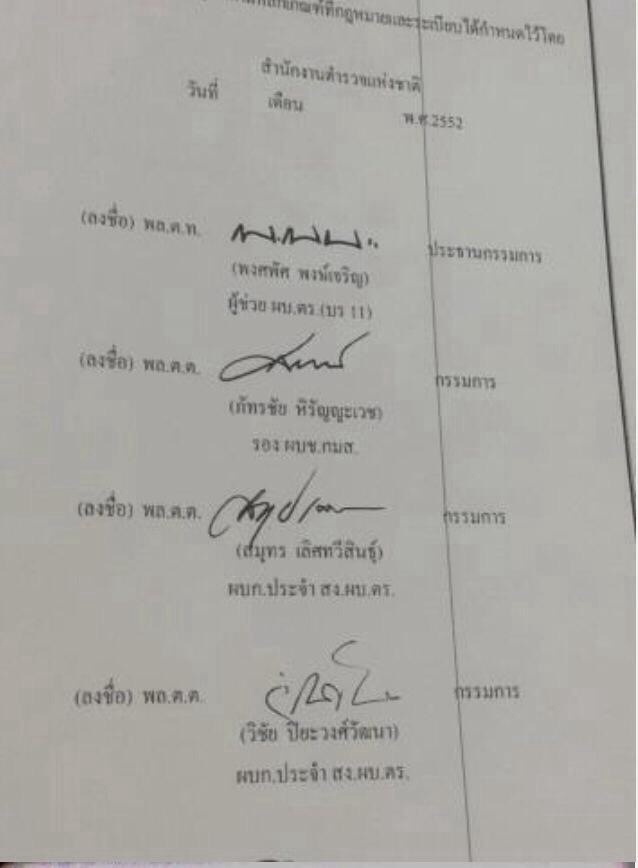 หลักเกณฑ์ที่กฎหมายและระเบียบได้กำหนดไว้โดย
สำนักงานตำรวจแห่งชาติ
วันที่ เดือน พ.ศ.2552
(ลงชื่อ) พล.ต.ท. ประธานกรรมการ
(พงศพัศ พงษ์เจริญ)
ผู้ช่วย ผบ.ตร.(บร 11)
(ลงชื่อ) พล.ต.ต. กรรมการ
(ภัทรชัย หิรัญญะเวช)
รอง ผบช.กมส.
(ลงชื่อ) พล.ต.ต. กรรมการ
(สมุทร เลิศทวีสินธุ์)
ผบก.ประจำ สง.ผบ.ตร.
(ลงชื่อ) พล.ต.ต. กรรมการ
(วิชัย ปิยะวงศ์วัฒนา)
ผบก.ประจำ สง.ผบ.ตร.